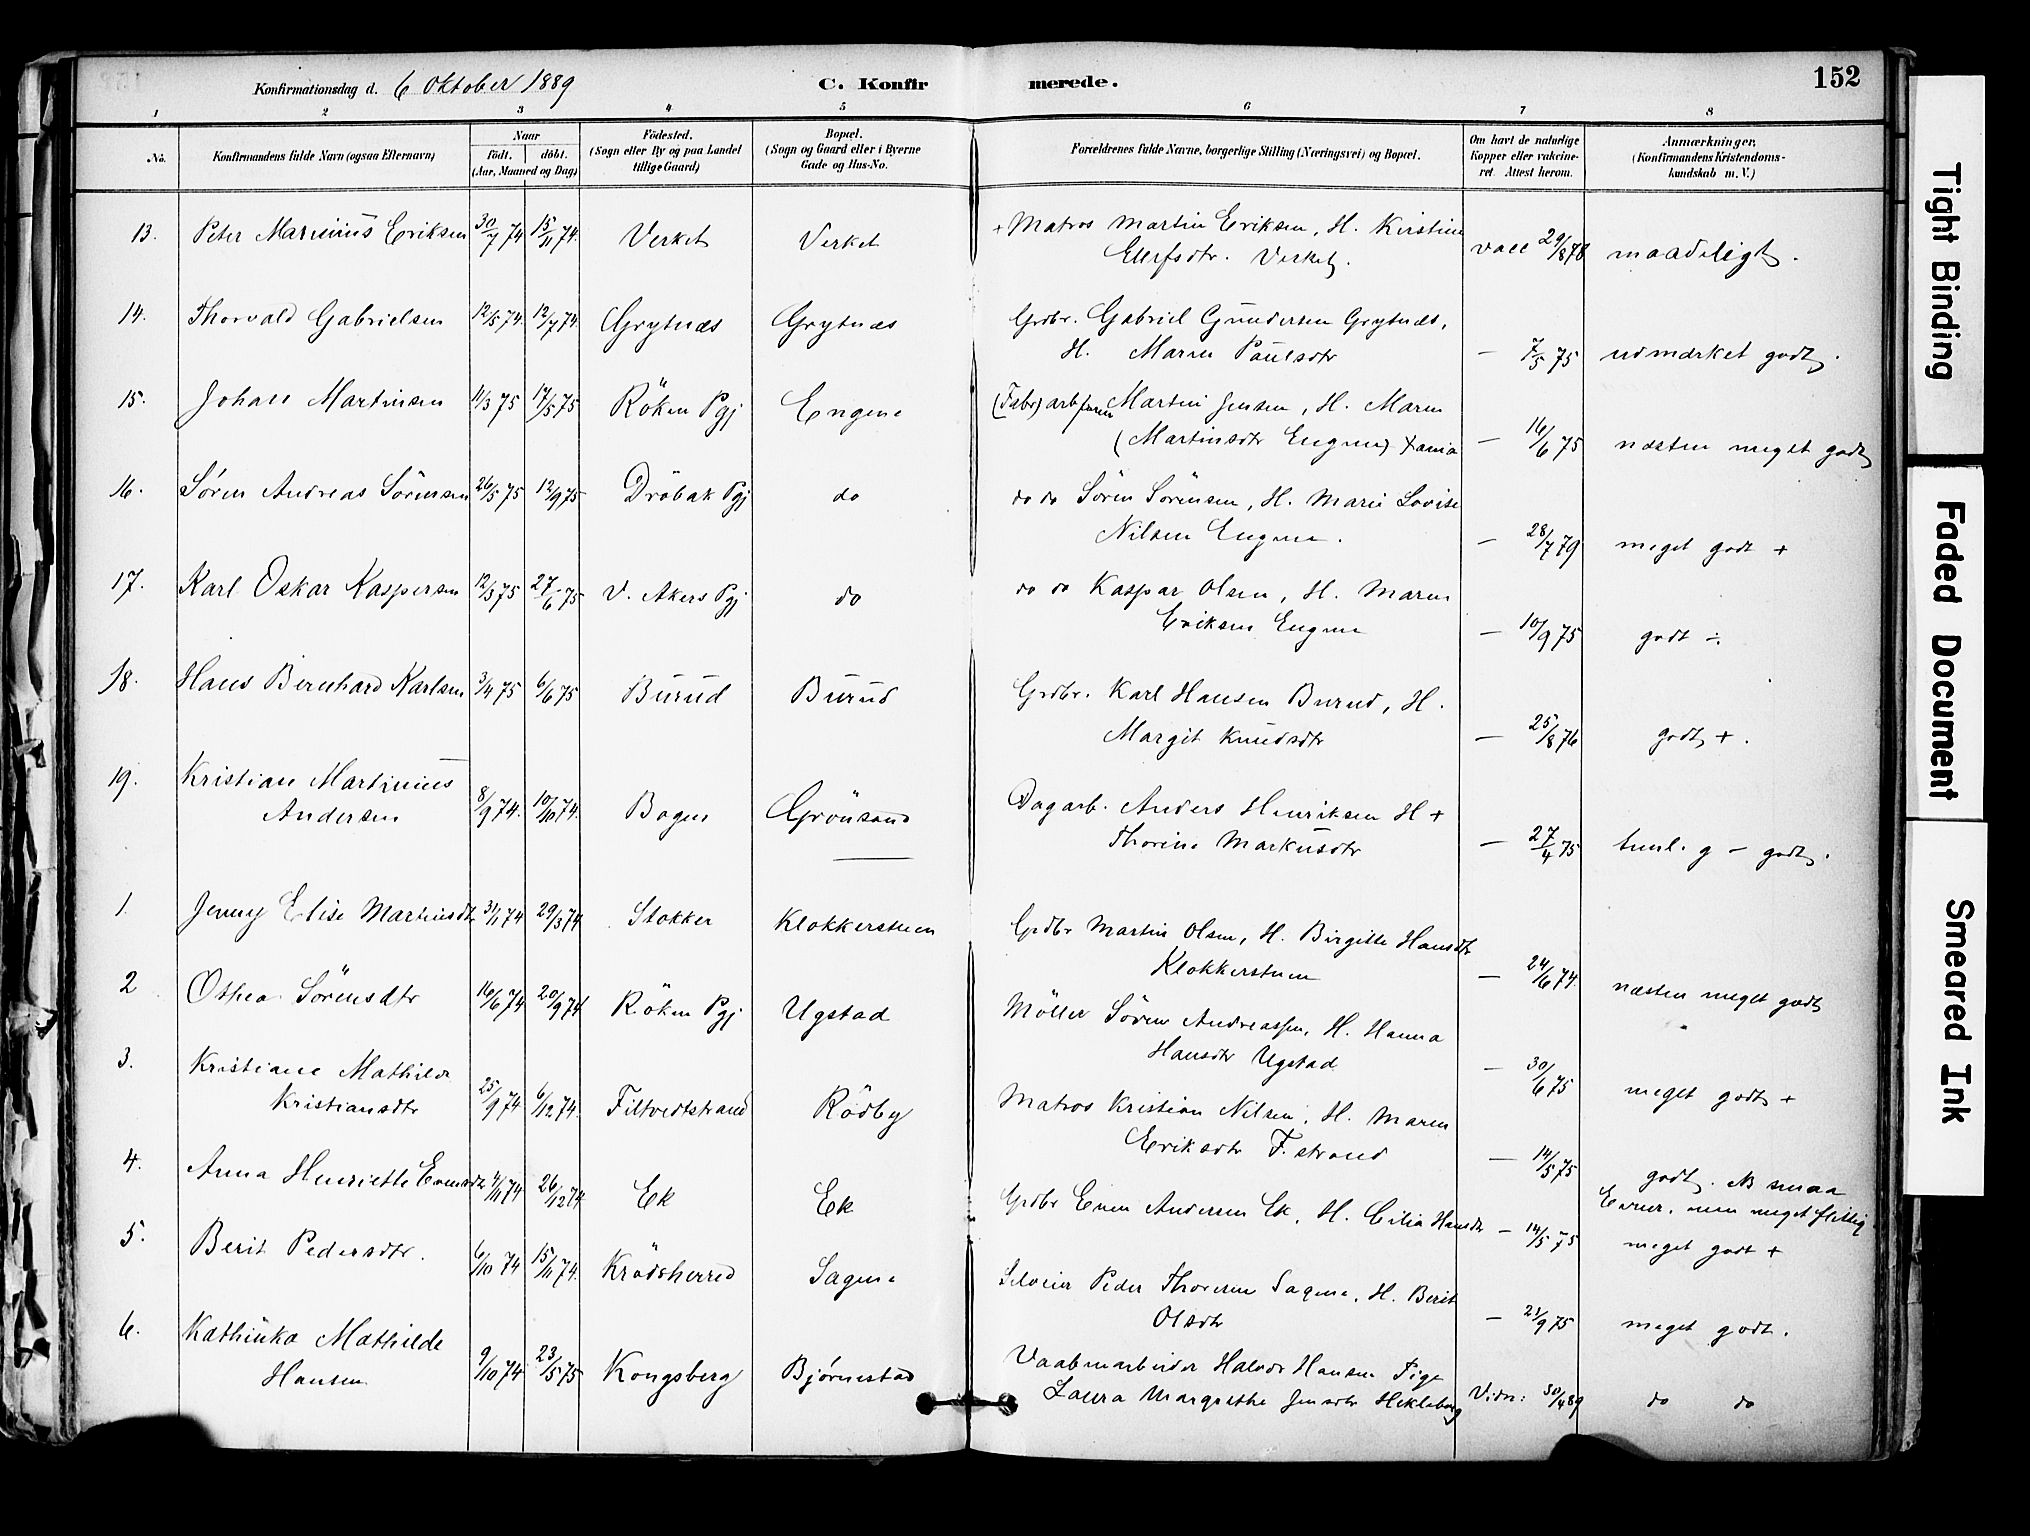 Konfirmationsdag d. 6 Oktober 1889
C. Konfir merede. 152
1 2 3 4 5 6 7 8
No. Konfirmandens fulde Navn (ogsaa Efternavn) Naar födt. döbt. (Aar, Maaned og Dag) Födested. (Sogn eller By og paa Landet tillige Gaard) Bopæl. (Sogn og Gaard eller i Byerne Gade og Hus-No. Forældrenes fulde Navne, borgerlige Stilling (Næringsvei) og Bopæl. Om havt de naturlige Kopper eller vakcineret. Attest herom. Anmærkninger. (Konfirmandens Kristendomskundskab m. V.)
13. Peter Marinius Eriksen 30/7 74 15/11 74. Verket Verket + Matros Martin Eriksen, H. Kirstine
Ellefsdtr. Verket. vacc 29/8 78 maadeligt.
14. Thorvald Gabrielsen 12/5 74. 12/7 74. Grytnæs Grytnæs Grdbr. Gabriel Gundersen Grytnæs,
H. Maren Paulsdtr — 7/5 75 udmærket godt.
15. Johan Martinsen 11/3 75 17/5 75 Röken Pgj Engene (Fabr) arb Martin Jensen, H. Maren
(Martinsdtr Engene) — 16/6 75 næsten meget godt
16. Søren Andreas Sörensen 26/5 75 12/9 75 Dröbak Pgj do do do Sören Sörensen, H. Marie Lovise
Nilsen Engene. — 28/7 79 meget godt +
17. Karl Oskar Kaspersen 12/3 75 27/6 75 V. Akers Pgj do do do Kaspar Olsen, H. Maren
Eriksen Engene — 10/9 75 godt ÷
18. Hans Bernhard Karlsen 3/4 75 6/6 75 Burud Burud Grdbr. Karl Hansen Burud, H.
Margit Knudsdtr — 25/8 76 godt +.
19. Kristian Martinius
Andersen 8/9 74. 10/10 74. Bogen Grönsand Dagarb. Anders Henriksen H +
Thorine Markusdtr — 27/4 75 teml. g — godt.
1. Jenny Elise Martinsdtr 31/1 74 29/3 74 Stokker Klokkerstuen Grdbr Martin Olsen, H. Birgitte Hansdtr
Klokkerstuen — 24/6 74. næsten meget godt
2 Othea Sörensdtr 16/6 74 20/9 74 Röken Pgj Ugstad Möller Sören Andreassen, H. Hanna
Hansdtr Ugstad — 30/6 75 meget godt +
3. Kristiane Mathilde
Kristiansdtr 25/9 74 6/12 74. Filtvedtstrand Rödby Matros Kristian Nilsen, H. Maren
Eriksdtr F.strand — 14/5 75 godt. NB smaa
Evner, men meget flittig
4. Anna Henriette Evensdtr 4/11 74 26/12 74 Ek Ek Grdbr Even Andersen Ek, H. Cilia Hansdtr — 14/5 75 meget godt +
5. Berit Pedersdtr. 6/10 74 15/11 74. Krödsherred Sagene Peder Sagene, H. Berit
Olsdtr — 21/9 75 meget godt.
6. Kathinka Mathilde
Hansen 9/10 74 23/5 75 Kongsberg Bjørnestad Vaabenarbeider Halvor Hansen Pige
Laura Margrethe Jensdtr Hekleberg Vidn: 30/4 89 do do
Tight Binding
Faded Document
Smeared Ink